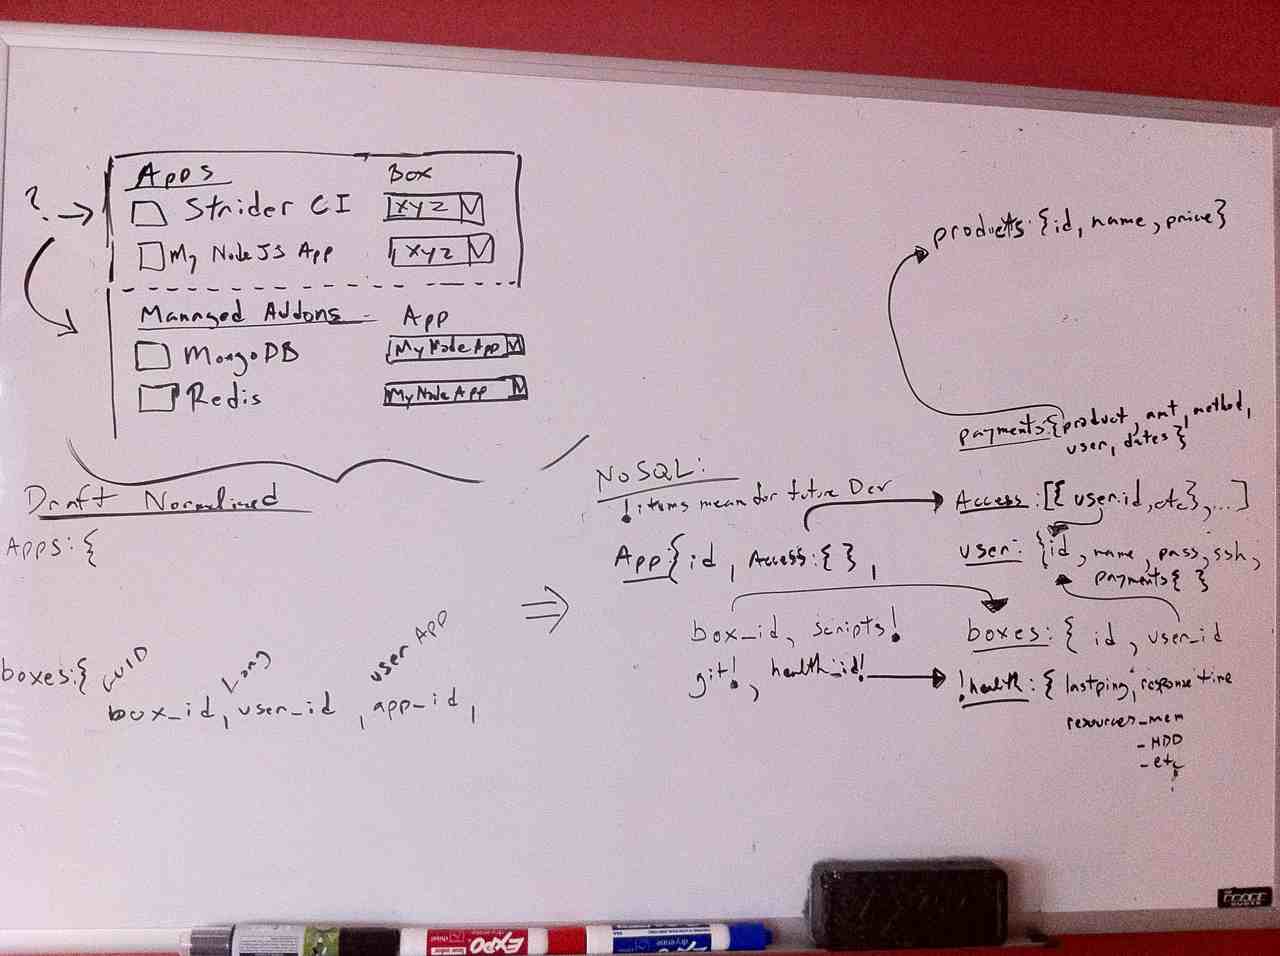 ?
Apps Box
Strider CI XYZ
My NodeJS App XYZ
Managed Addons App
MongoDB MyNodeApp
Redis MyNodeApp
Draft Normalized
Apps:{
boxes:{ GUID Long user App
box_id, user_id, app_id,
NoSQL:
! items mean for future Dev
App:{id, Access:{},
box_id, scripts!
git!, health_id!
products:{id, name, price}
payments:{product, amt, method,
user, dates}
Access:[{user.id, etc}, ...]
user: {id, name, pass, ssh,
payments{ }
boxes: { id, user_id
!health: { lastping, response time
resources_mem
- HDD
- etc
EXPO
EXPO